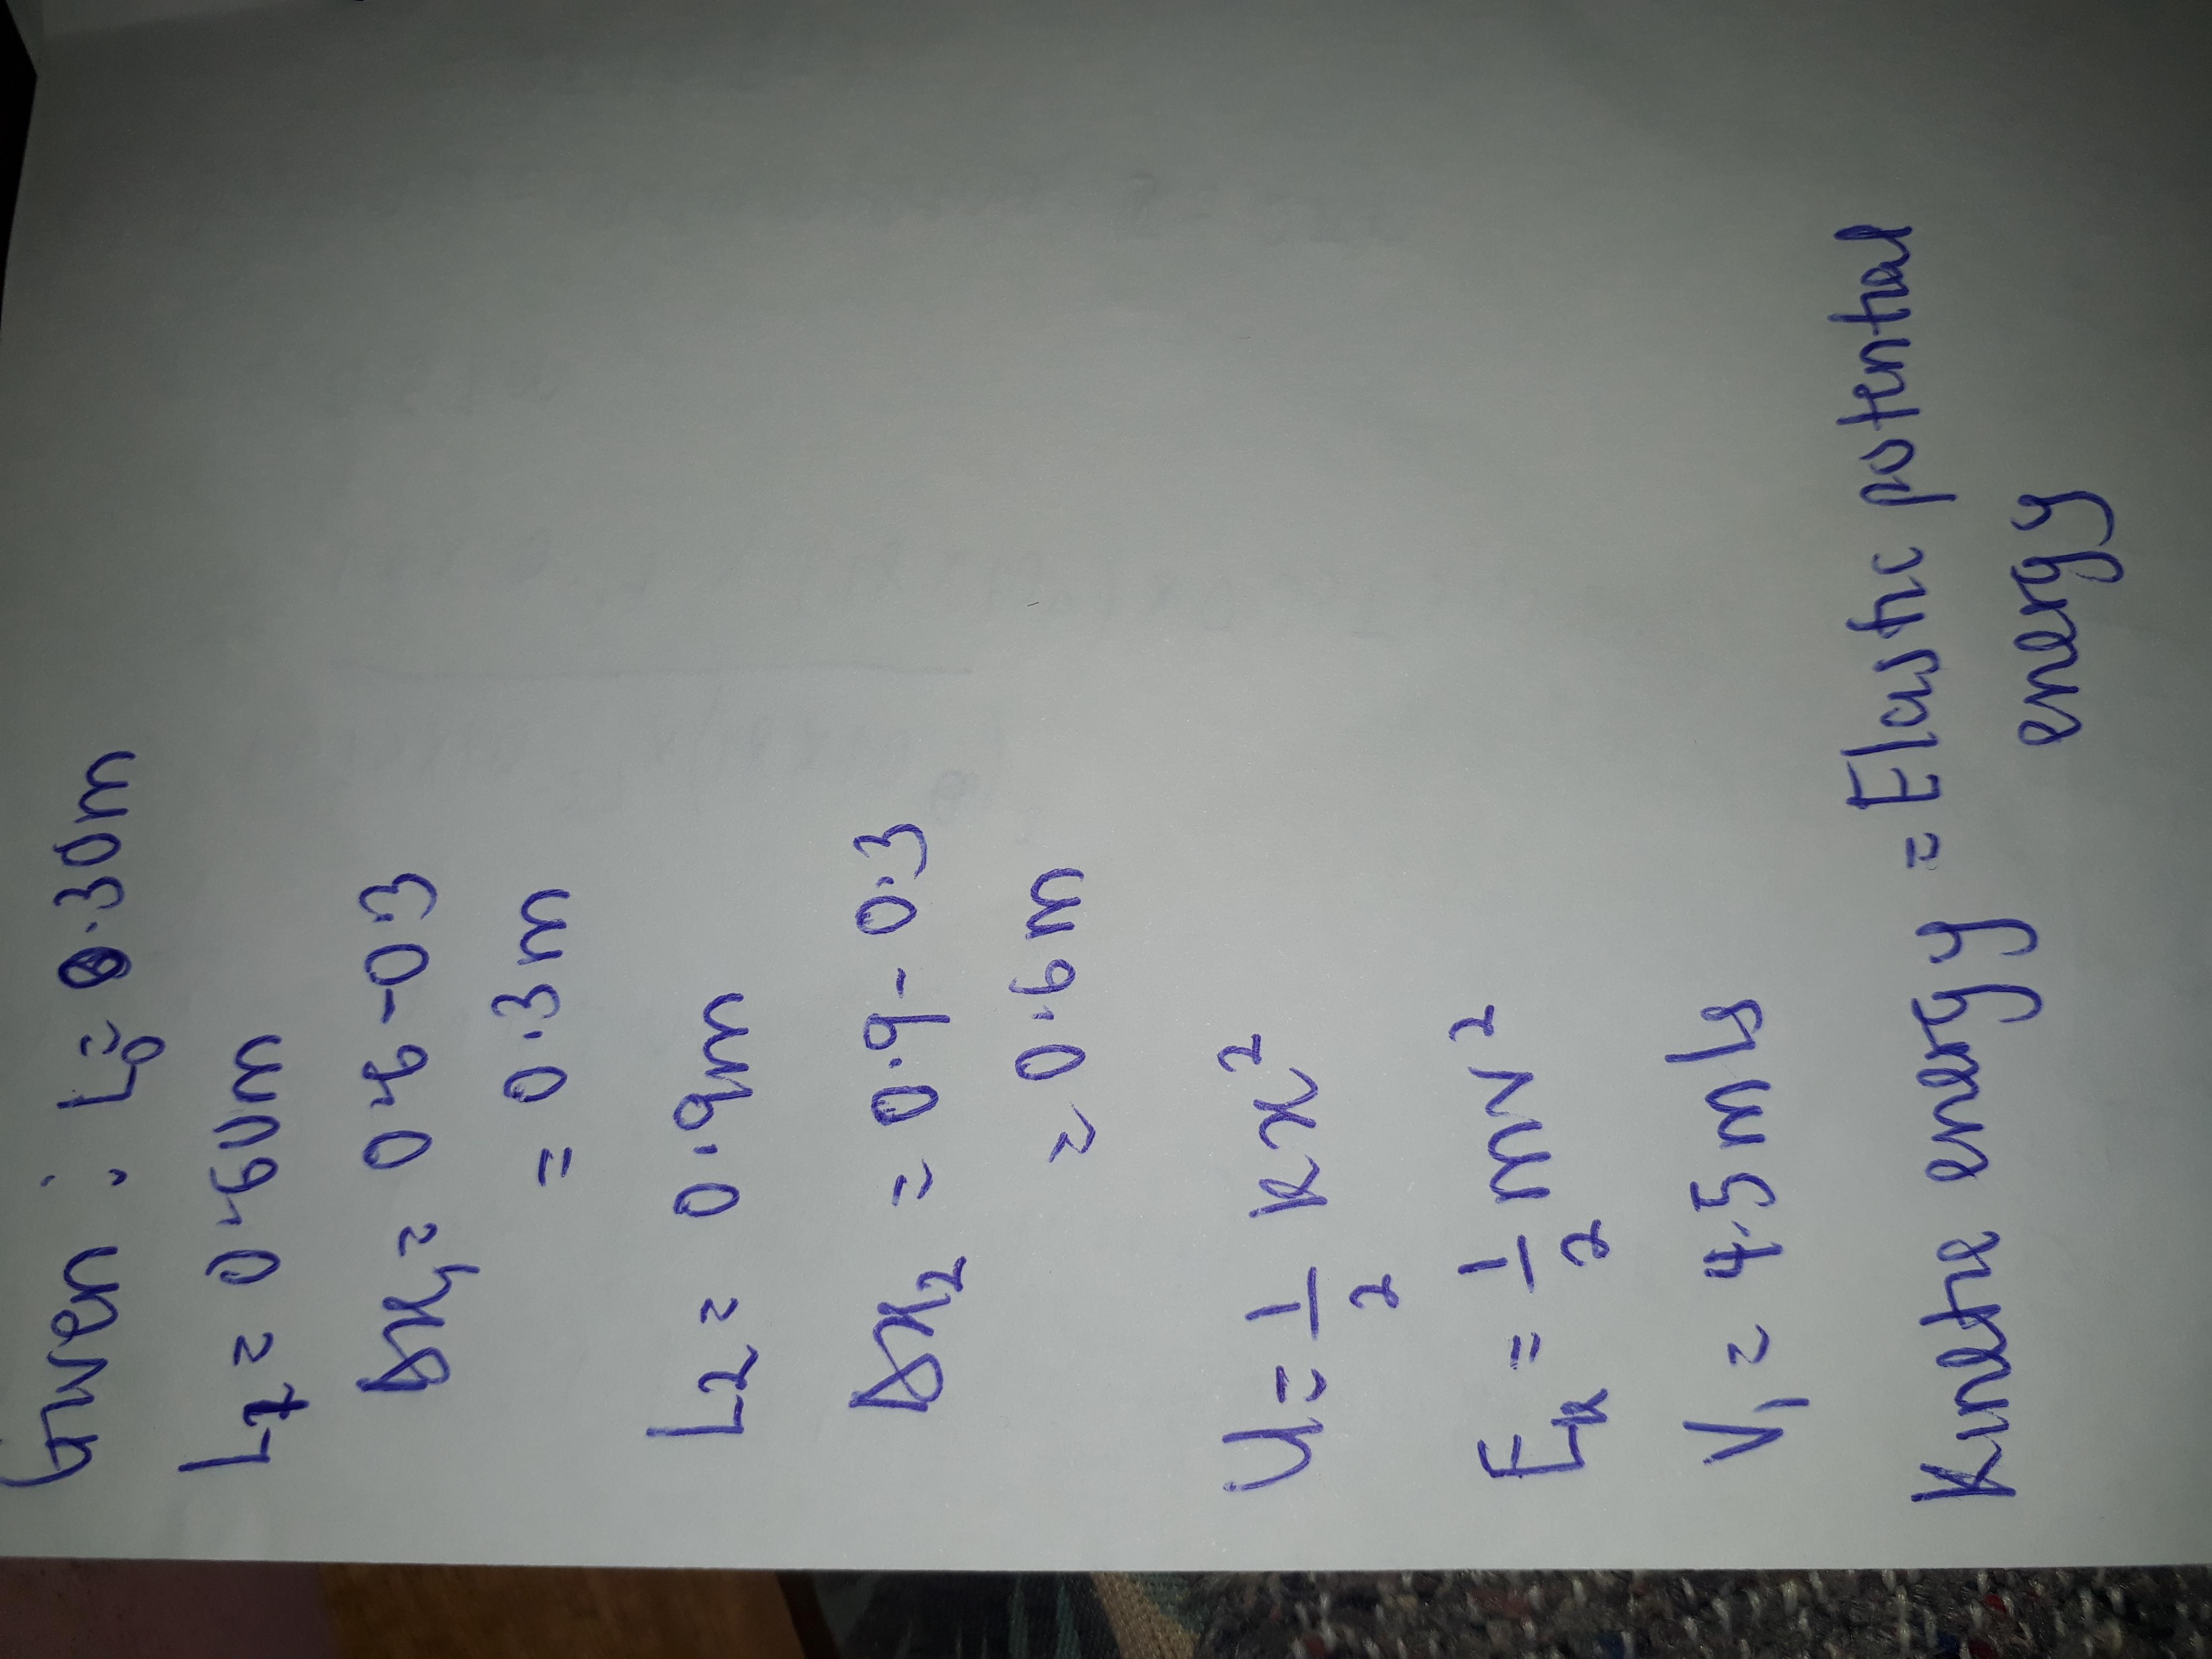 Given : L₀ = 0.30m
L₁ = 0.60m
Δx₁ = 0.6 - 0.3
= 0.3m
L₂ = 0.9m
Δx₂ = 0.9 - 0.3
= 0.6m
U = 1/2 kx²
Eₖ = 1/2 mv²
V₁ = 4.5 m/s
Kinetic energy = Elastic potential
energy